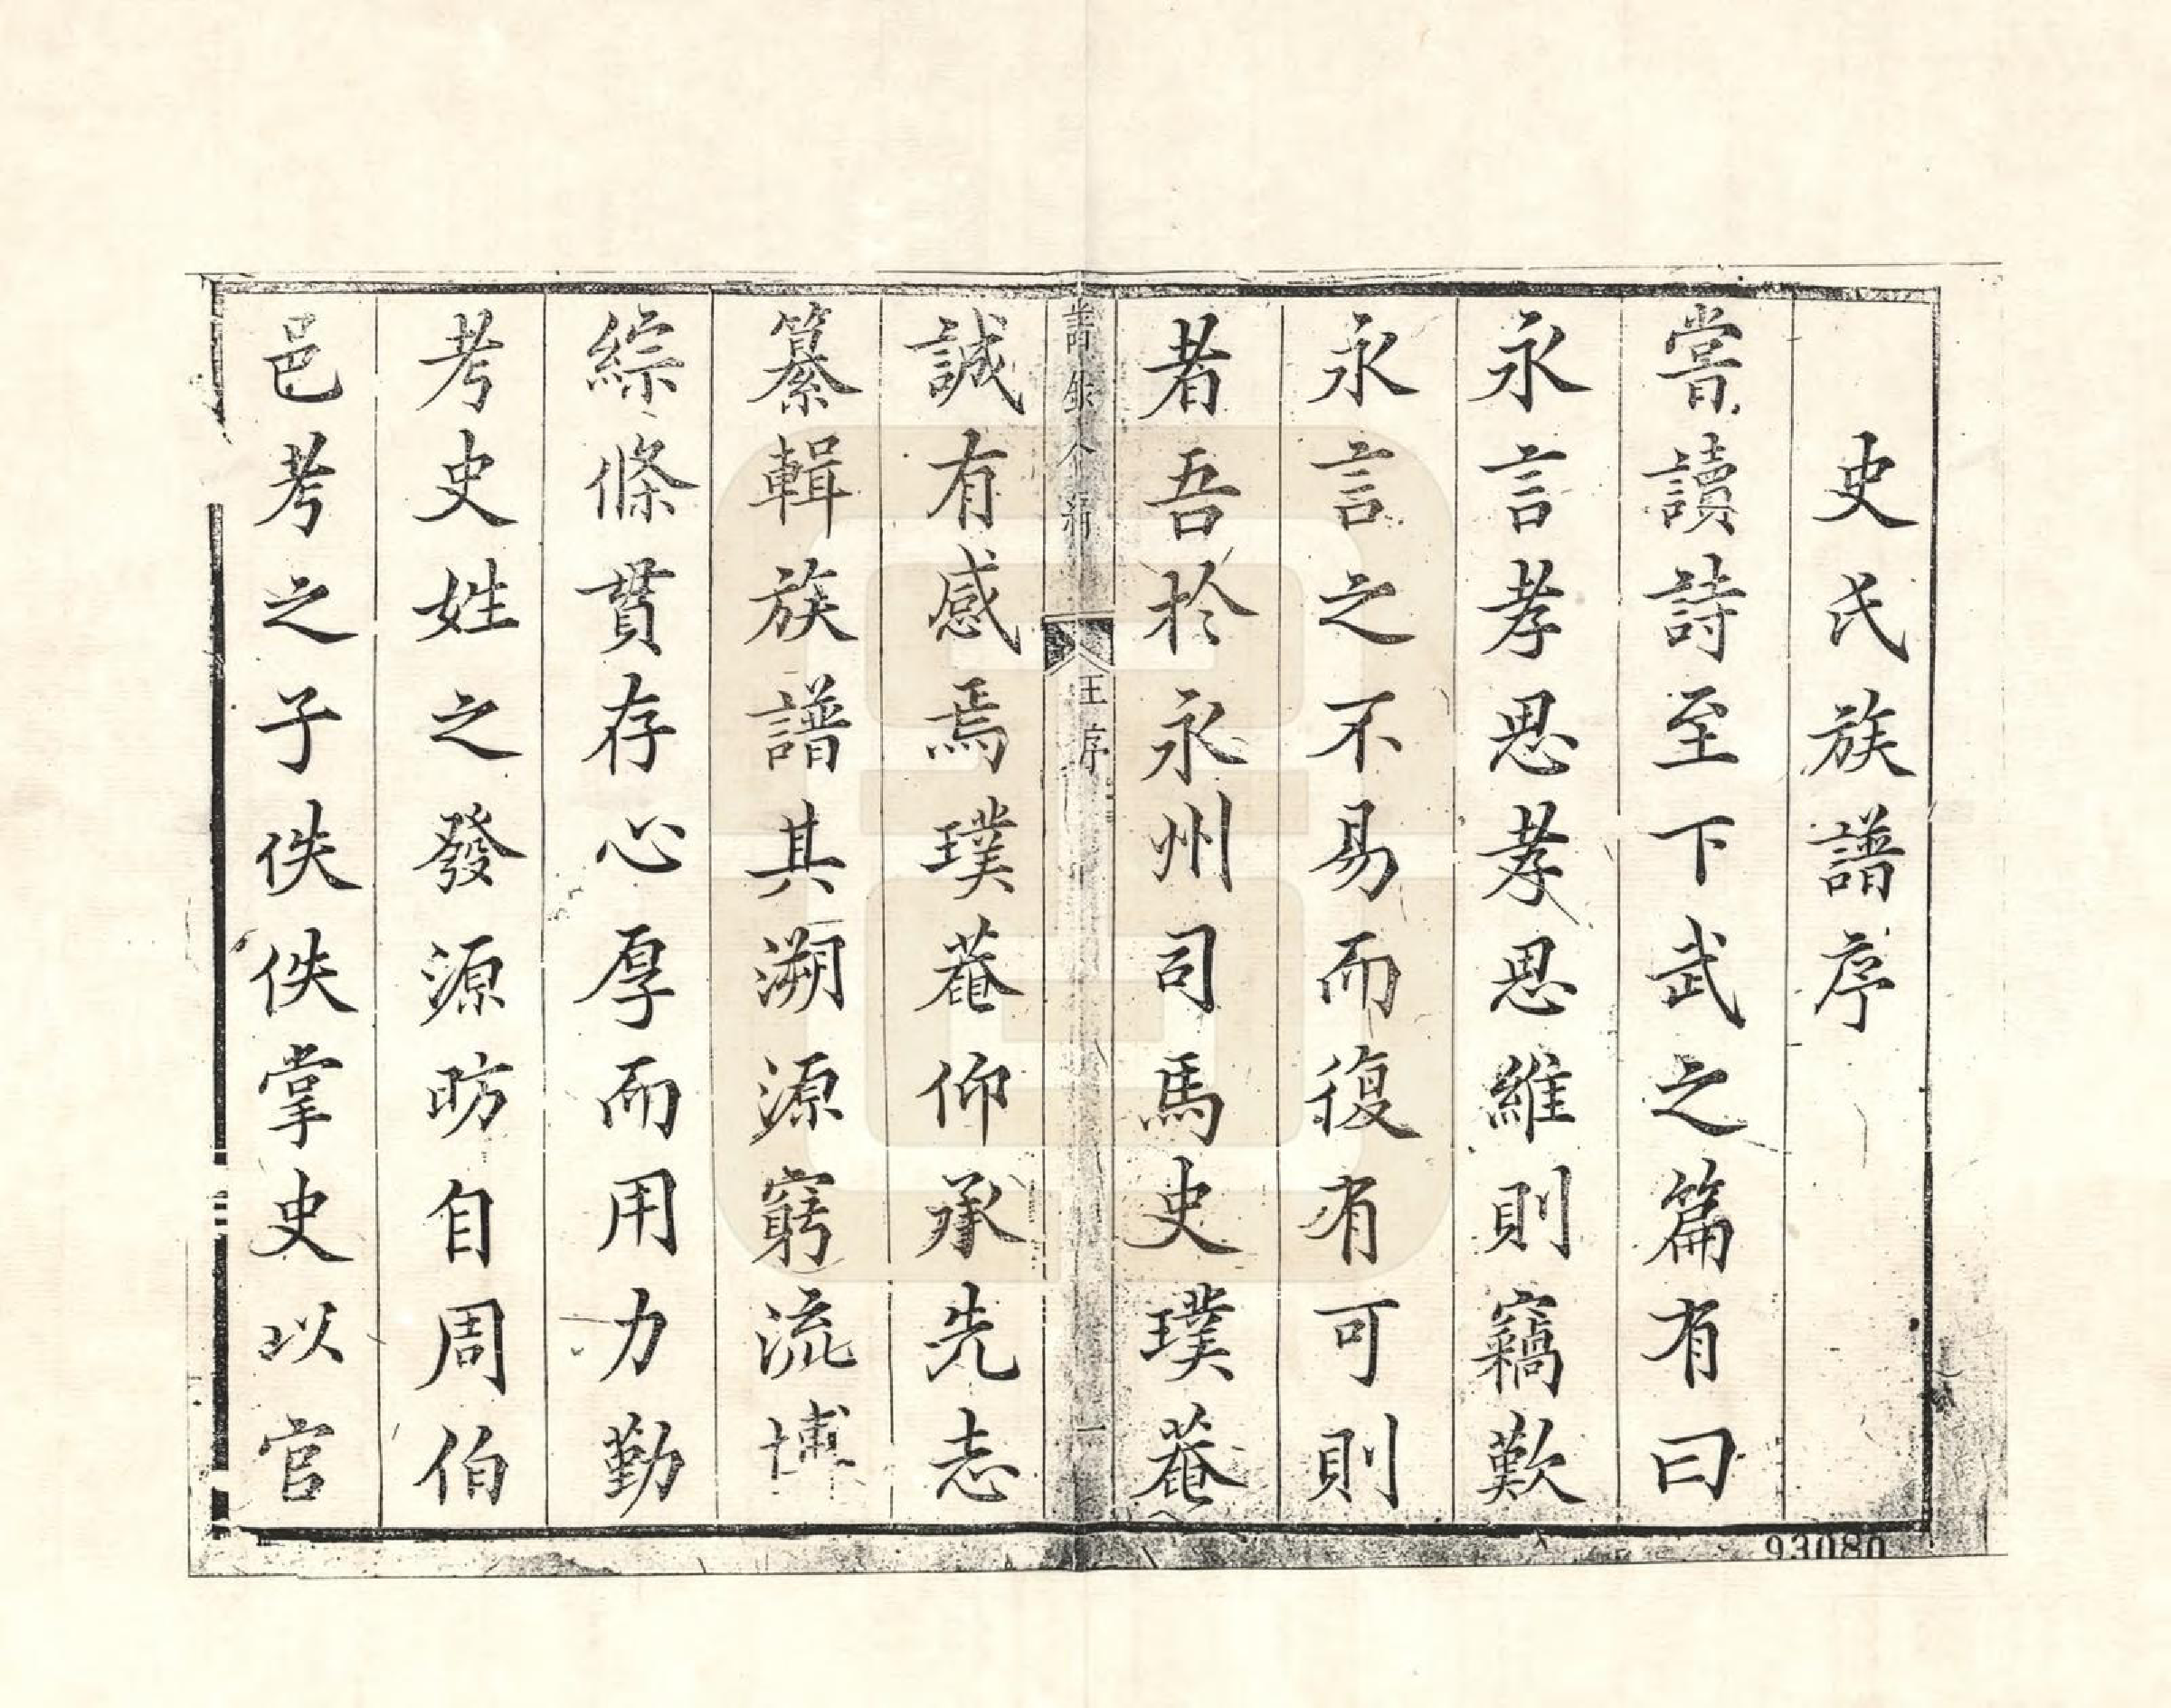 史氏族譜序
嘗讀詩至下武之篇有曰
永言孝思孝思維則竊歎
永言之不易而復有可則
者吾於永州司馬史璞菴
王序
一
誠有感焉璞菴仰承先志
纂輯族譜其溯源窮流博
綜條貫存心厚而用力勤
考史姓之發源昉自周伯
邑考之子佚佚掌史以官
93080